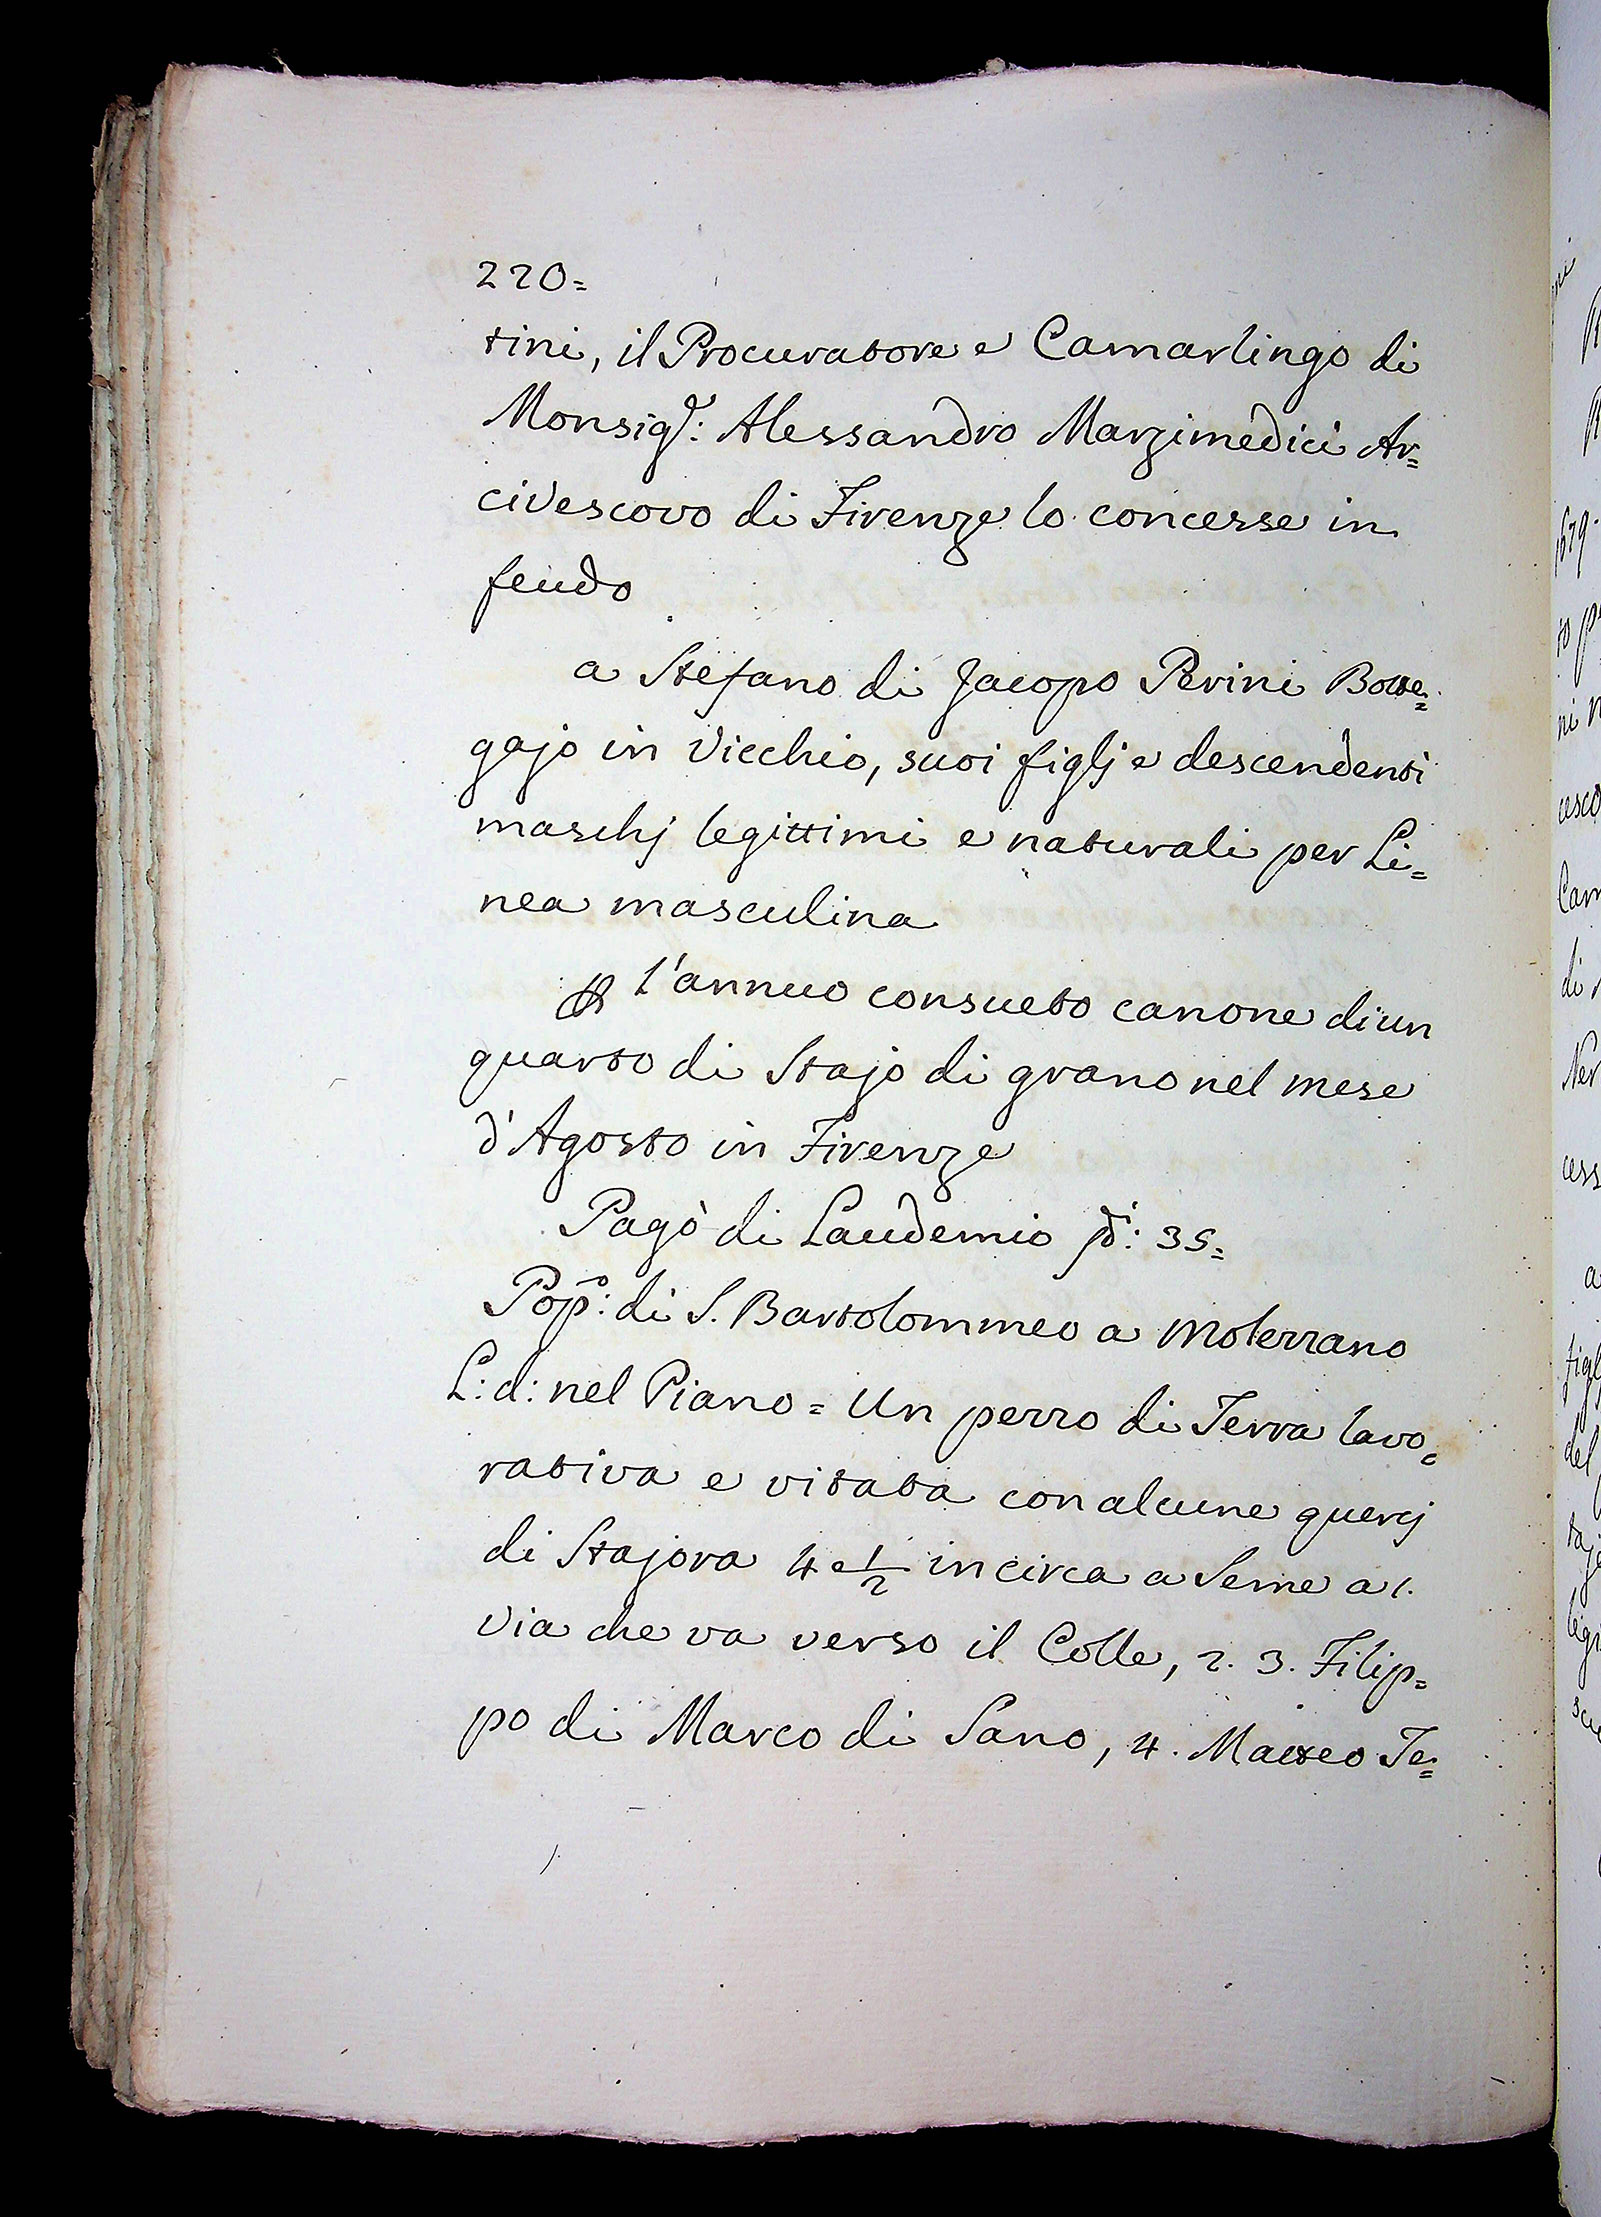 220=
tini, il Procuratore e Camarlingo di
Monsigr: Alessandro Marzimedici Ar=
civescovo di Firenze lo concesse in
feudo
a Stefano di Jacopo Perini Botte=
gajo in Vicchio, suoi figlj e descendenti
maschj legittimi e naturali per Li=
nea masculina
l'annuo consueto canone di un
quarto di Stajo di grano nel mese
d'Agosto in Firenze
Pagò di Laudemio 35=
Popo: di S. Bartolommeo a Molezzano
L: d: nel Piano = Un pezzo di Terra lavo=
rativa e vitata con alcune quercj
di Stajora 4 e 1/2 in circa a Seme a 1.
via che va verso il Colle, 2. 3. Filip=
po di Marco di Sano, 4. Matteo Te=
1679.
cesco
Cam
di
Ner
cess
a
figl
del